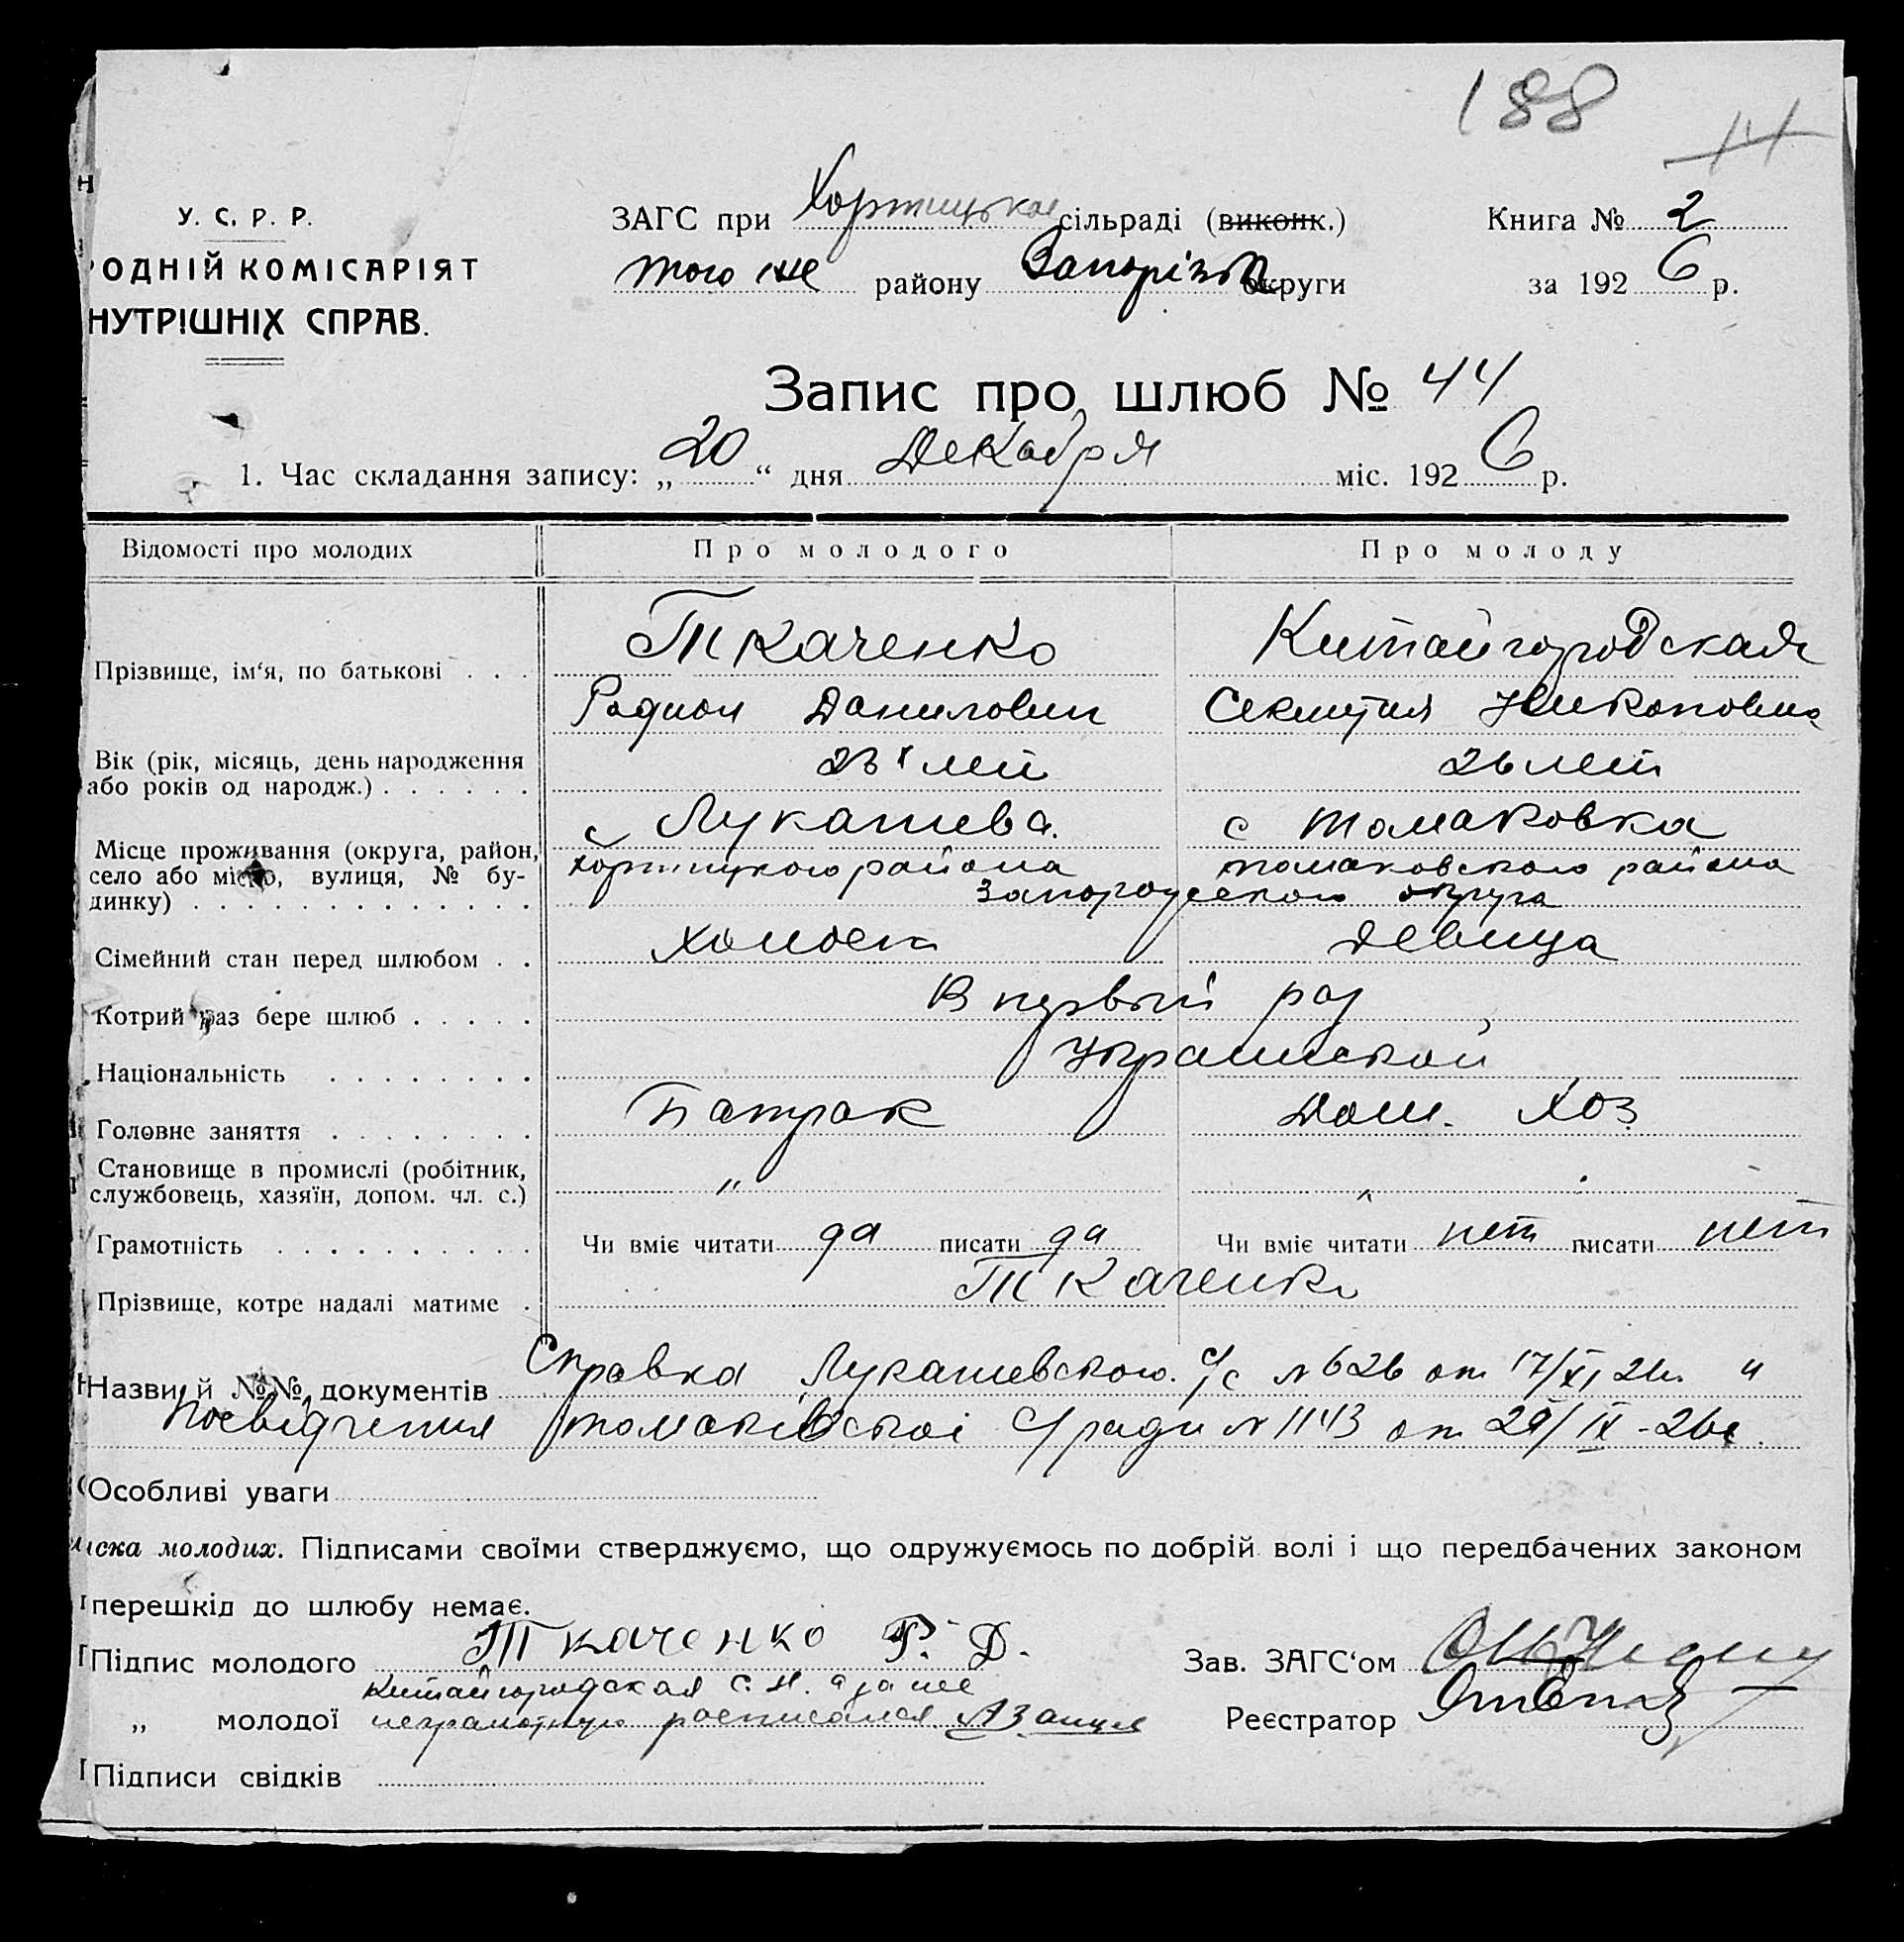 188
14
У. С. Р. Р.
ЗАГС при Хортицькой сільраді (виконк.)
Книга № 2
ОДНІЙ КОМІСАРІЯТ
того же району Запорізьк округи
за 1926 р.
НУТРІШНІХ СПРАВ.
Запис про шлюб № 44
1. Час складання запису: „20“ дня Декабря міс. 1926 р.
Відомості про молодих
Про молодого
Про молоду
Прізвище, ім‘я, по батькові . . .
Ткаченко
Китайгородская
Родион Данилович
Секлитія Никоновна
Вік (рік, місяць, день народження
або років од народж.) . . . . . .
23 лет
26 лет
Місце проживання (округа, район,
село або місто, вулиця, № бу-
динку) . . . . . . . . . . . . .
с Лукашева.
с Томаковка
Хортицкого района
Томаковского района
Запорожского округа
Сімейний стан перед шлюбом . .
Холост
Девица
Котрий раз бере шлюб . . . . .
В первый раз
Національність . . . . . . . .
Украинской
Головне заняття . . . . . . . .
Батрак
Дом. Хоз
Становище в промислі (робітник,
службовець, хазяїн, допом. чл. с.)
"
"
Грамотність . . . . . . . . . . .
Чи вміє читати да писати да
Чи вміє читати нет писати нет
Прізвище, котре надалі матиме .
Ткаченко
Назви й №№ документів Справка Лукашевского с/с № 626 от 17/XI 26г. и
Посвідчення Томаківської с/ради № 1143 от 29/IX - 26г.
Особливі уваги
иска молодих. Підписами своїми стверджуємо, що одружуємось по добрій волі і що передбачених законом
перешкід до шлюбу немає.
Підпис молодого Ткаченко Р. Д.
Зав. ЗАГС‘ом
Китайгородская С. Н. а за нее
„ молодої неграмотную росписался
Реєстратор
Підписи свідків